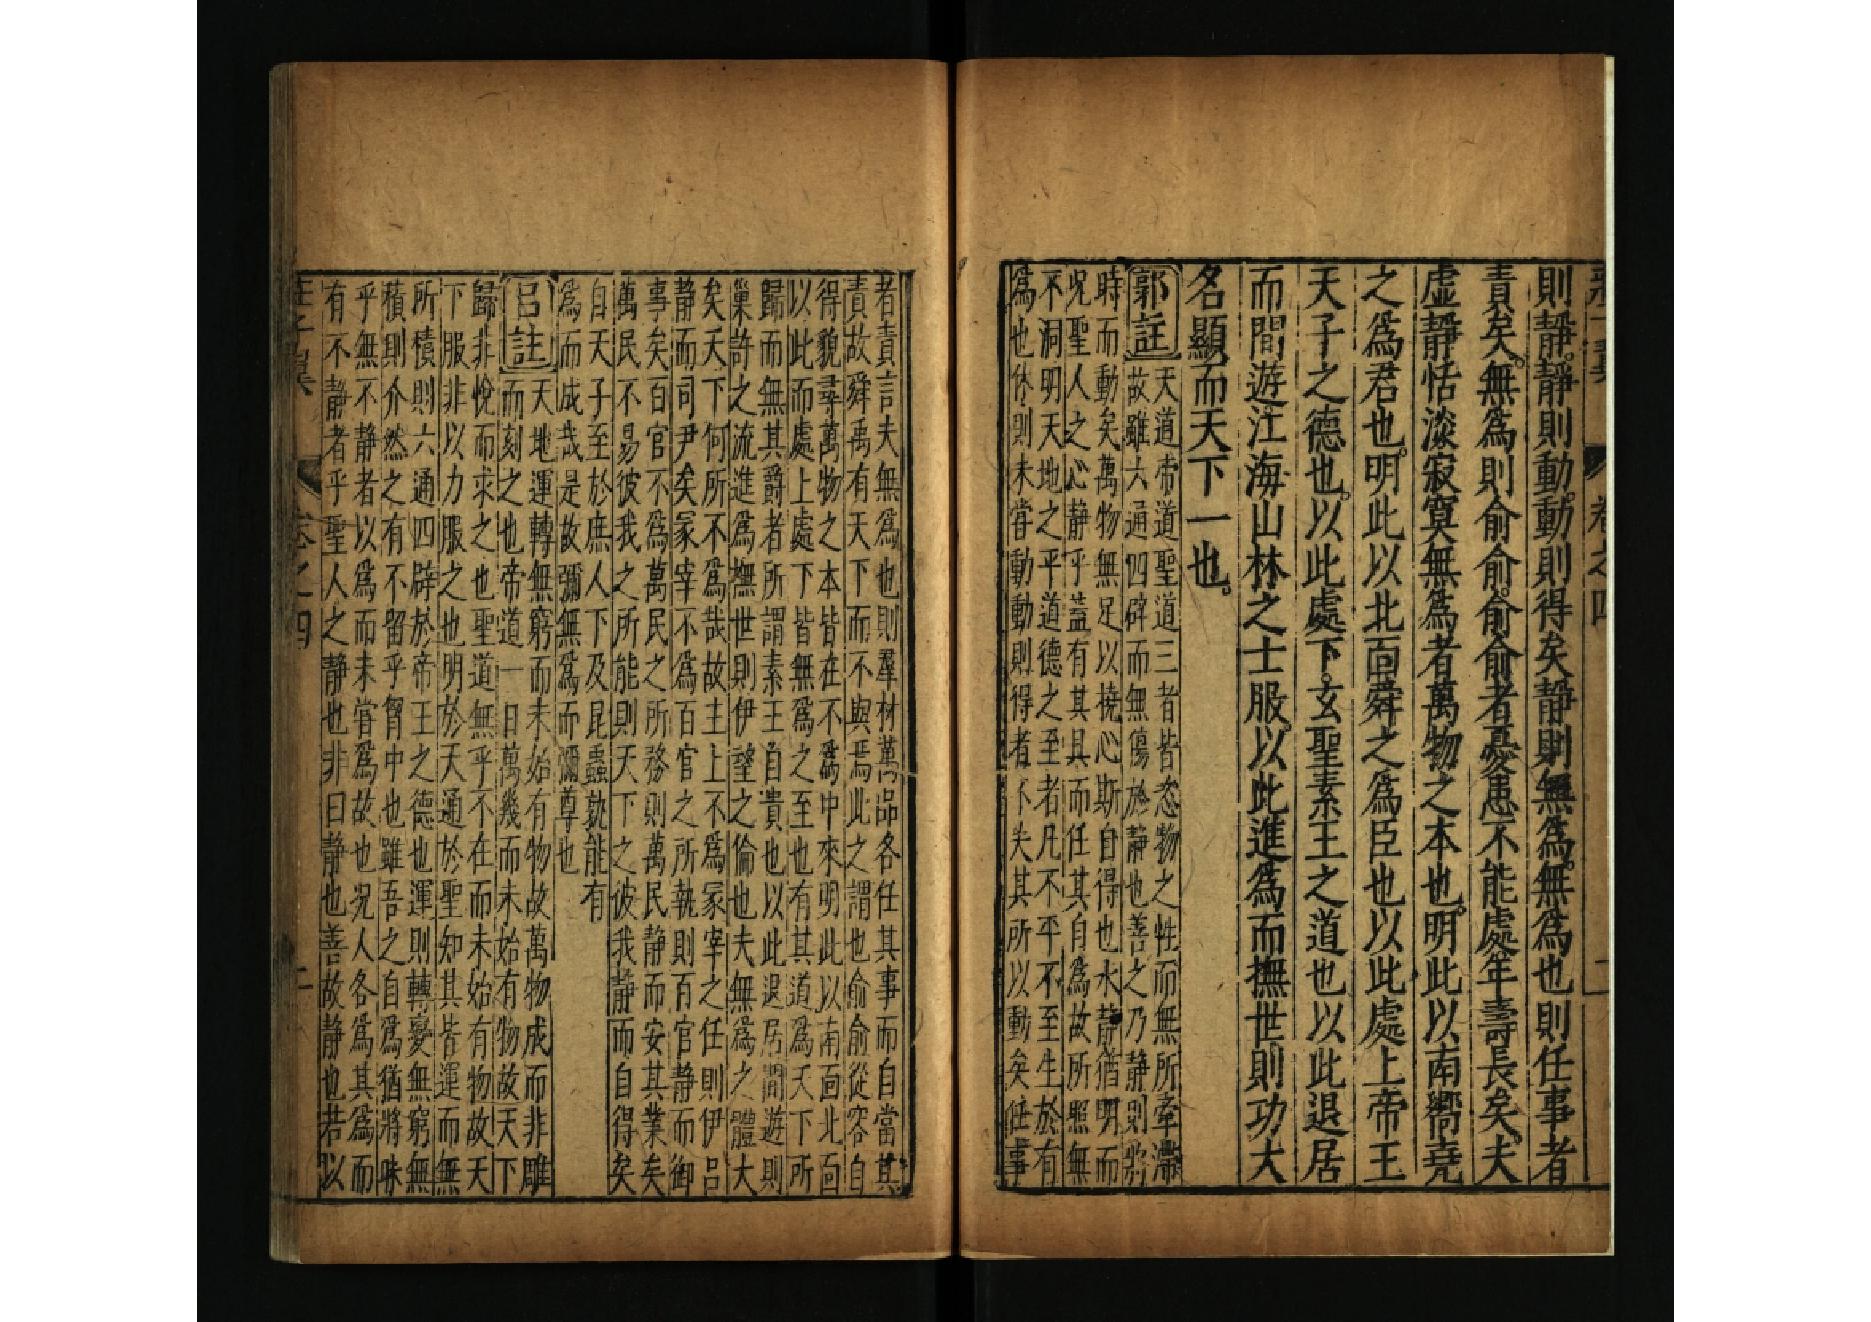 則靜靜則動動則得矣靜則無爲無爲也則任事者
責矣無爲則俞俞俞俞者憂患不能處年壽長矣夫
虛靜恬淡寂寞無爲者萬物之本也明此以南嚮堯
之爲君也明此以北面舜之爲臣也以此處上帝王
天子之德也以此處下玄聖素王之道也以此退居
而間遊江海山林之士服以此進爲而撫世則功大
名顯而天下一也
郭註
天道帝道聖道三者皆恣物之性而無所牽滯
故雖六通四辟而無傷於靜也善之乃靜則將
時而動矣萬物無足以撓心斯自得也水靜猶明而
况聖人之心靜乎蓋有其具而任其自爲故所照無
不洞明天地之平道德之至者凡不平不至生於有
爲也休則未甞動動則得者不失其所以動矣任事
者責言夫無爲也則羣材萬品各任其事而自當其
責故舜禹有天下而不與焉此之謂也俞俞從容自
得貌尋萬物之本皆在不爲中來明此以南面北面
以此而處上處下皆無爲之至也有其道爲天下所
歸而無其爵者所謂素王自貴也以此退居間遊則
巢許之流進爲撫世則伊望之倫也夫無爲之體大
矣天下何所不爲哉故主上不爲冢宰之任則伊呂
靜而司尹矣冢宰不爲百官之所執則百官靜而御
事矣百官不爲萬民之所務則萬民靜而安其業矣
萬民不易彼我之所能則天下之彼我靜而自得矣
自天子至於庶人下及昆蟲孰能有
爲而成哉是故彌無爲而彌尊也
呂註
天地運轉無窮而未始有物故萬物成而非雕
而刻之也帝道一日萬幾而未始有物故天下
歸非悅而求之也聖道無乎不在而未始有物故天
下服非以力服之也明於天通於聖知其皆運而無
所積則六通四辟於帝王之德也運則轉變無窮無
積則介然之有不留乎胷中也雖吾之自爲猶將昧
乎無不靜者以爲而未甞爲故也况人各爲其爲而
有不靜者乎聖人之靜也非曰靜也善故靜也若以
卷之四